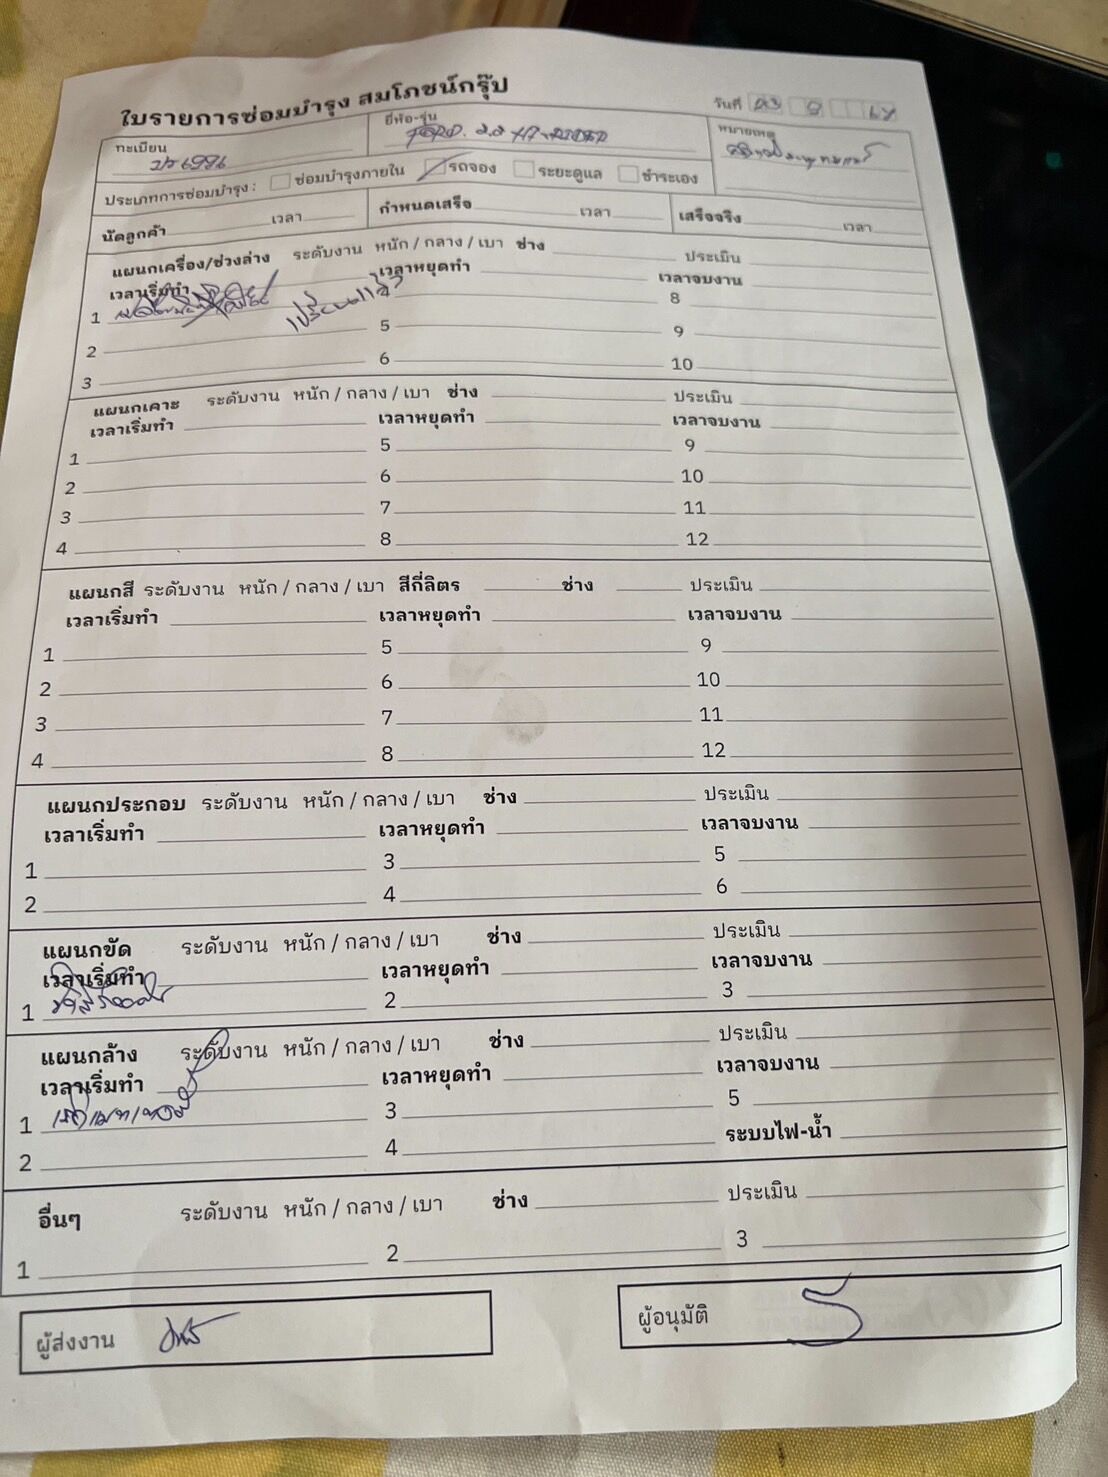 ใบรายการซ่อมบำรุง สมโภชน์กรุ๊ป
วันที่
ทะเบียน
ยี่ห้อ-รุ่น FORD 2.2
หมายเหตุ
ประเภทการซ่อมบำรุง : ซ่อมบำรุงภายใน รถจอง ระยะดูแล ชำระเอง
นัดลูกค้า เวลา กำหนดเสร็จ เวลา เสร็จจริง เวลา
แผนกเครื่อง/ช่วงล่าง ระดับงาน หนัก / กลาง / เบา ช่าง ประเมิน
เวลาเริ่มทำ เวลาหยุดทำ เวลาจบงาน
1 เปลี่ยนแล้ว 8
2 5 9
3 6 10
แผนกเคาะ ระดับงาน หนัก / กลาง / เบา ช่าง ประเมิน
เวลาเริ่มทำ เวลาหยุดทำ เวลาจบงาน
1 5 9
2 6 10
3 7 11
4 8 12
แผนกสี ระดับงาน หนัก / กลาง / เบา สีกี่ลิตร ช่าง ประเมิน
เวลาเริ่มทำ เวลาหยุดทำ เวลาจบงาน
1 5 9
2 6 10
3 7 11
4 8 12
แผนกประกอบ ระดับงาน หนัก / กลาง / เบา ช่าง ประเมิน
เวลาเริ่มทำ เวลาหยุดทำ เวลาจบงาน
1 3 5
2 4 6
แผนกขัด ระดับงาน หนัก / กลาง / เบา ช่าง ประเมิน
เวลาเริ่มทำ เวลาหยุดทำ เวลาจบงาน
1 2 3
แผนกล้าง ระดับงาน หนัก / กลาง / เบา ช่าง ประเมิน
เวลาเริ่มทำ เวลาหยุดทำ เวลาจบงาน
1 3 5
2 4 ระบบไฟ-น้ำ
อื่นๆ ระดับงาน หนัก / กลาง / เบา ช่าง ประเมิน
1 2 3
ผู้ส่งงาน ผู้อนุมัติ